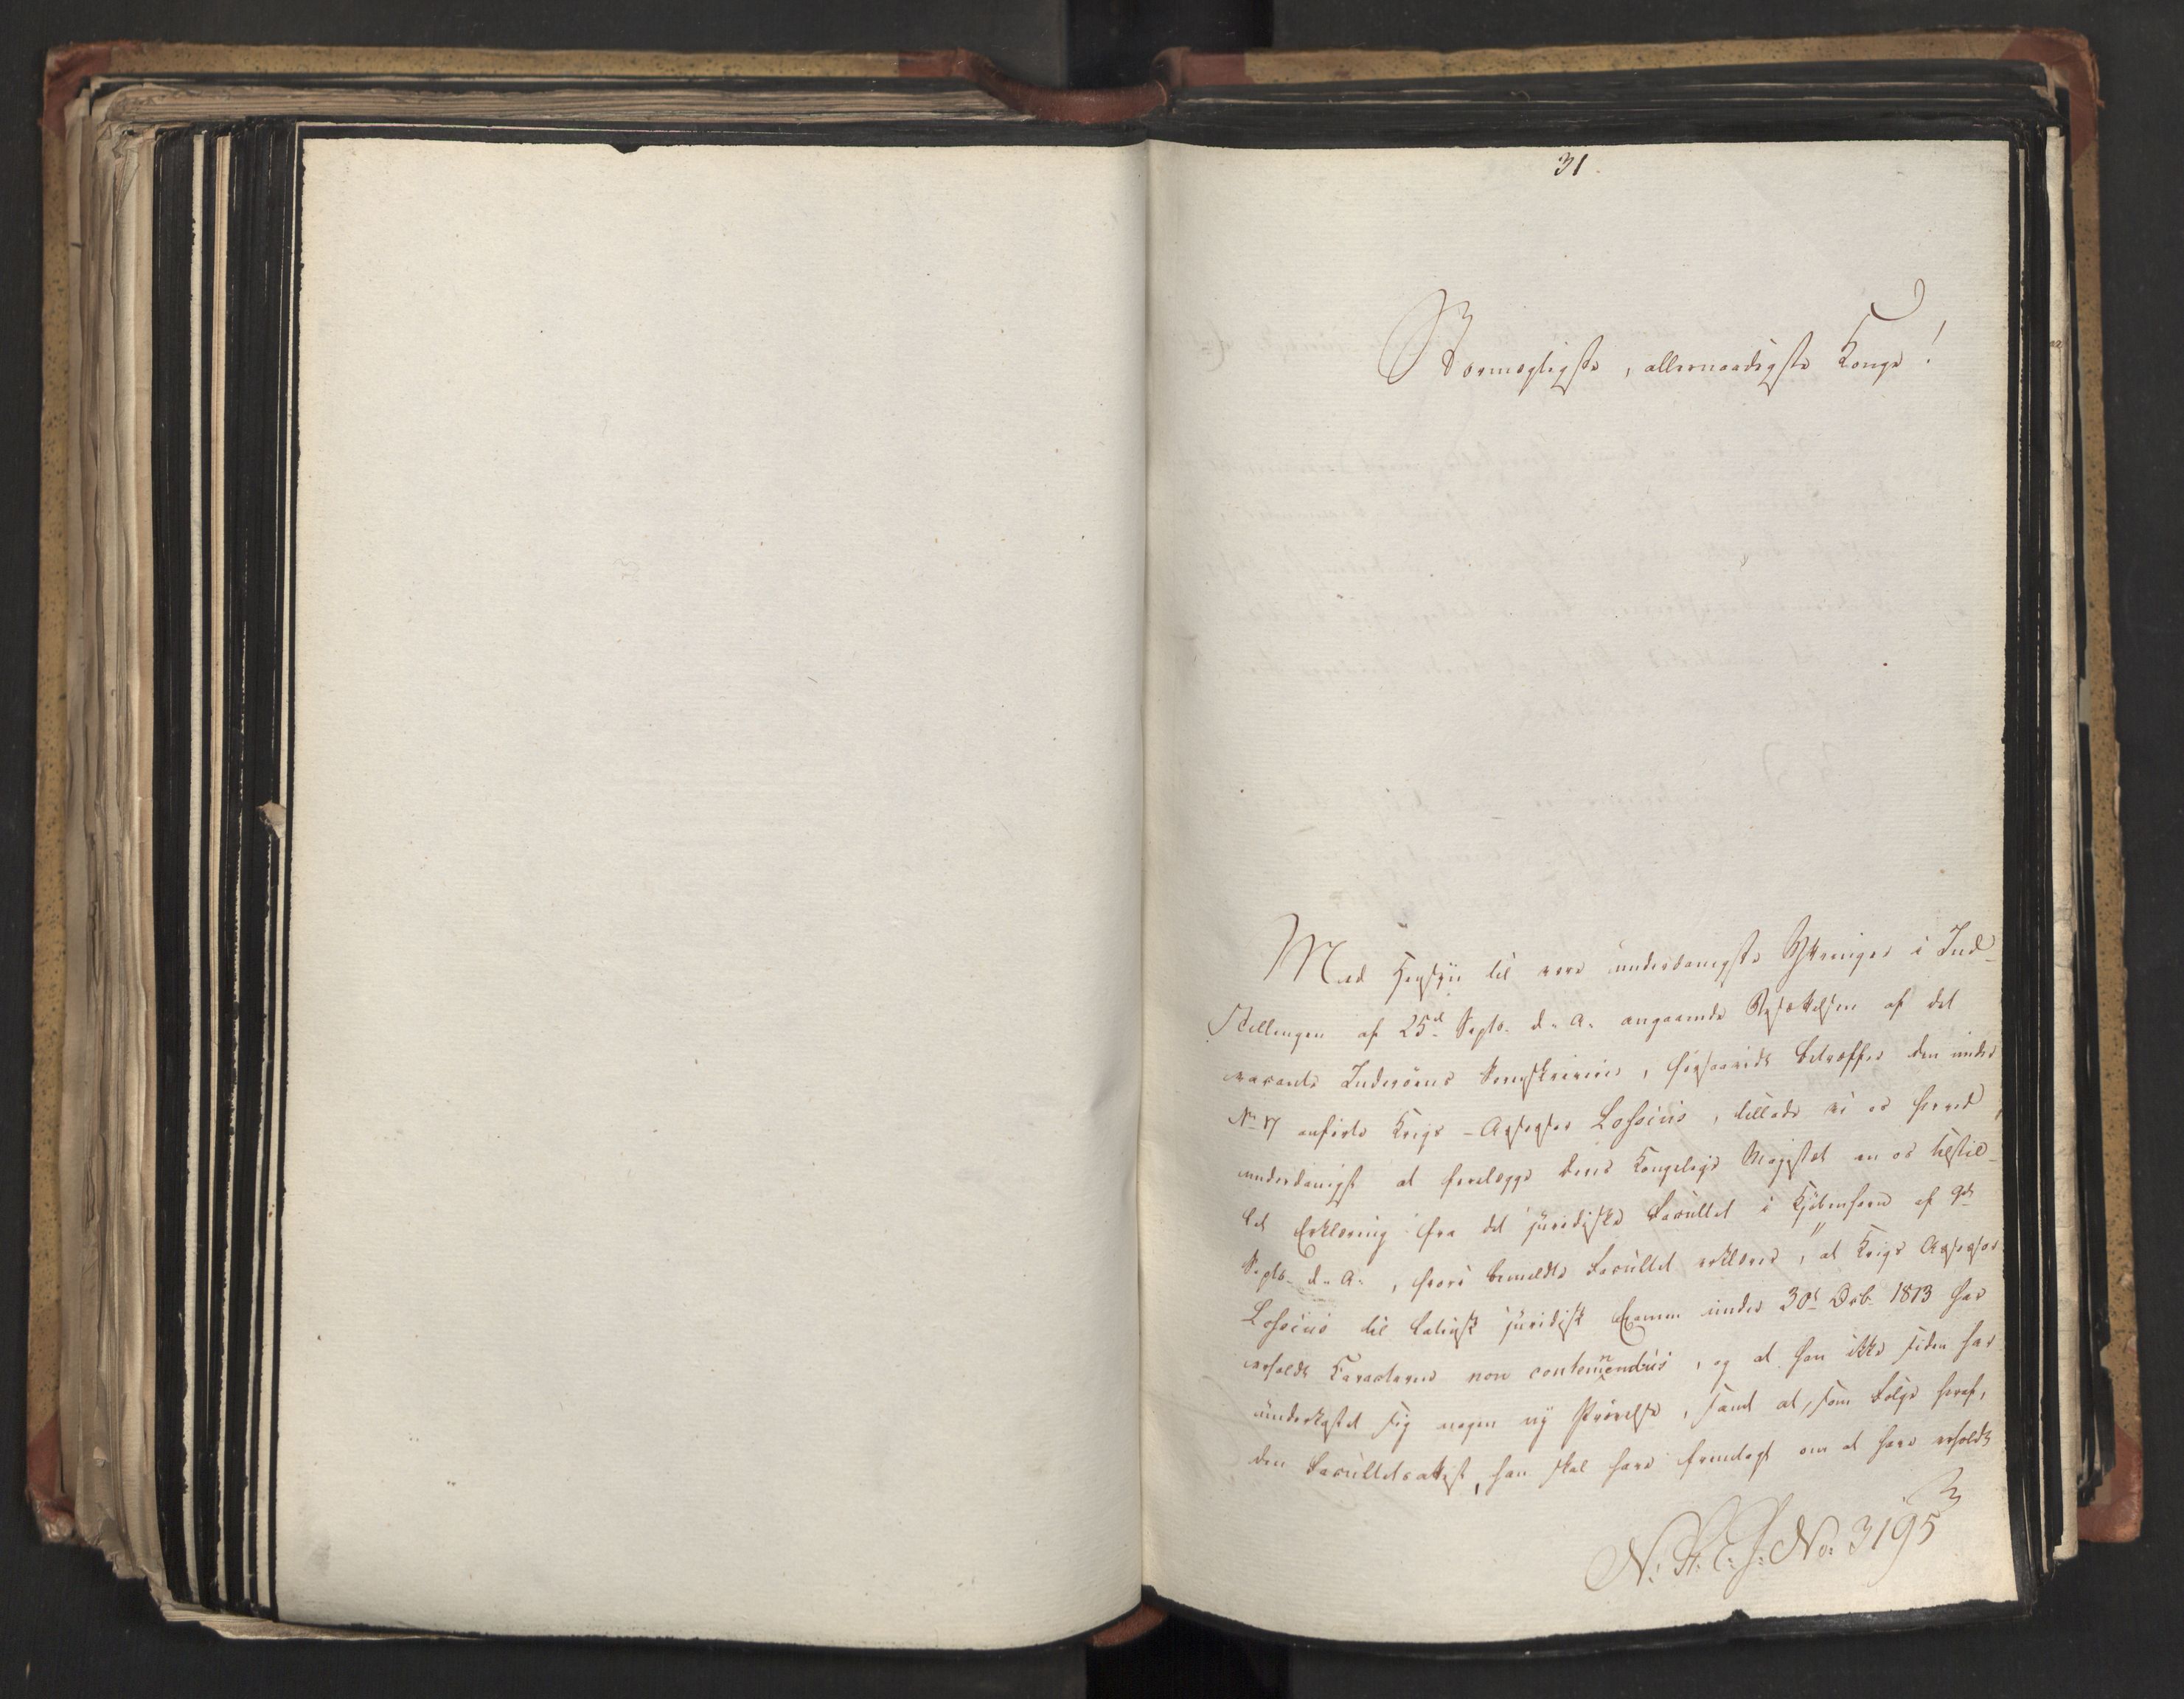 31.
Stormægtigste, allernaadigste Konge!
Med Hensyn til vore underdanigste Yttringer i Ind-
stillingen af 25d Septb. d. A. angaaende Besættelsen af det
vacante Inderøens Sorenskriverie, forsaavidt betræffer den under
No 17 anførte Krigs-Assessor Lossius, tillade vi os herved
underdanigst at forelægge Deres Kongelige Majestet en os tilstil-
let Erklæring fra det juridiske Facultet i Kjöbenhavn af 9de
Septb. d. A., hvori bemeldte Facultet erklærer, "at Krigs Assessor
Lossius til latinsk juridisk Examen under 30t Octb. 1813 har
erholdt Characteren non contemnendus, og at han ikke siden har
underkastet sig nogen ny Prövelse, samt at, som Følge heraf,
den Facultetsattest, han skal have fremlagt om at have erholdt
N: St: C: J: No: 3195